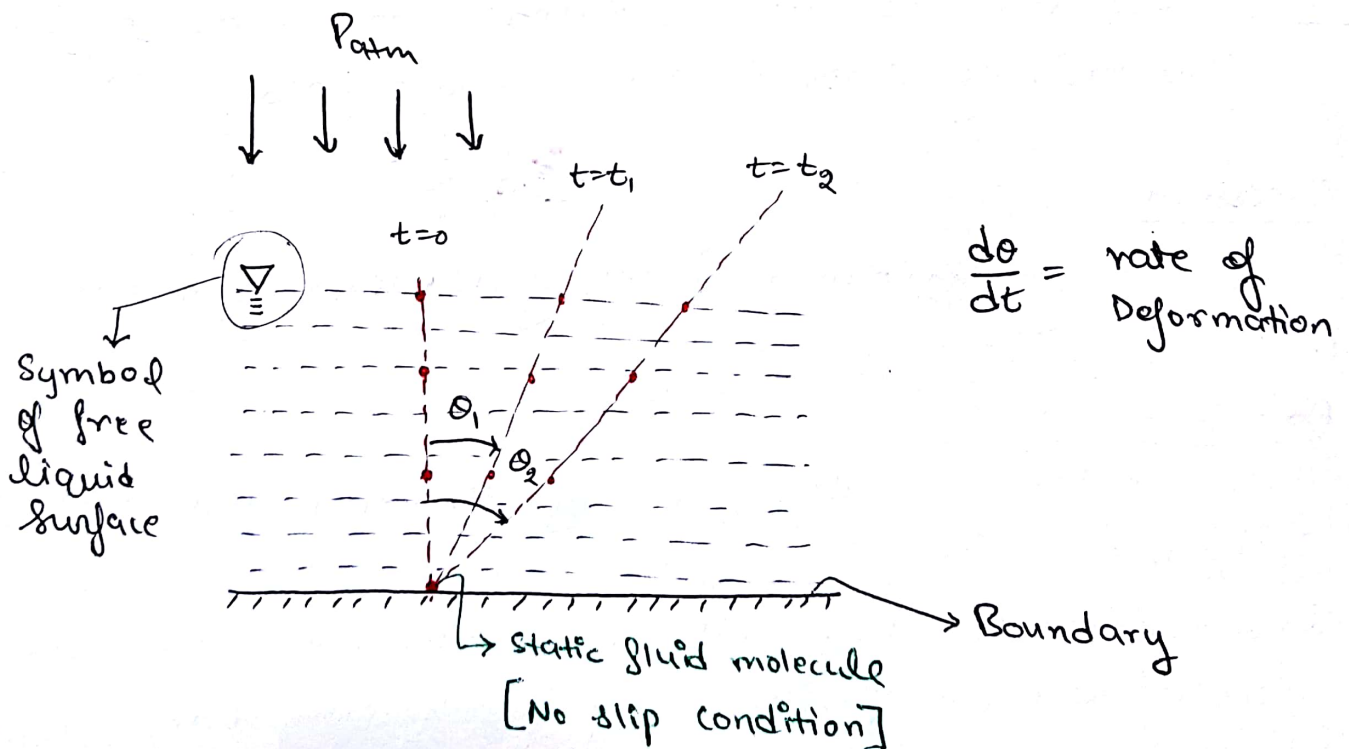 Patm
t=t₁
t=t₂
t=0
dθ/dt = rate of
Deformation
Symbol
of free
liquid
surface
θ₁
θ₂
Boundary
Static fluid molecule
[No slip condition]